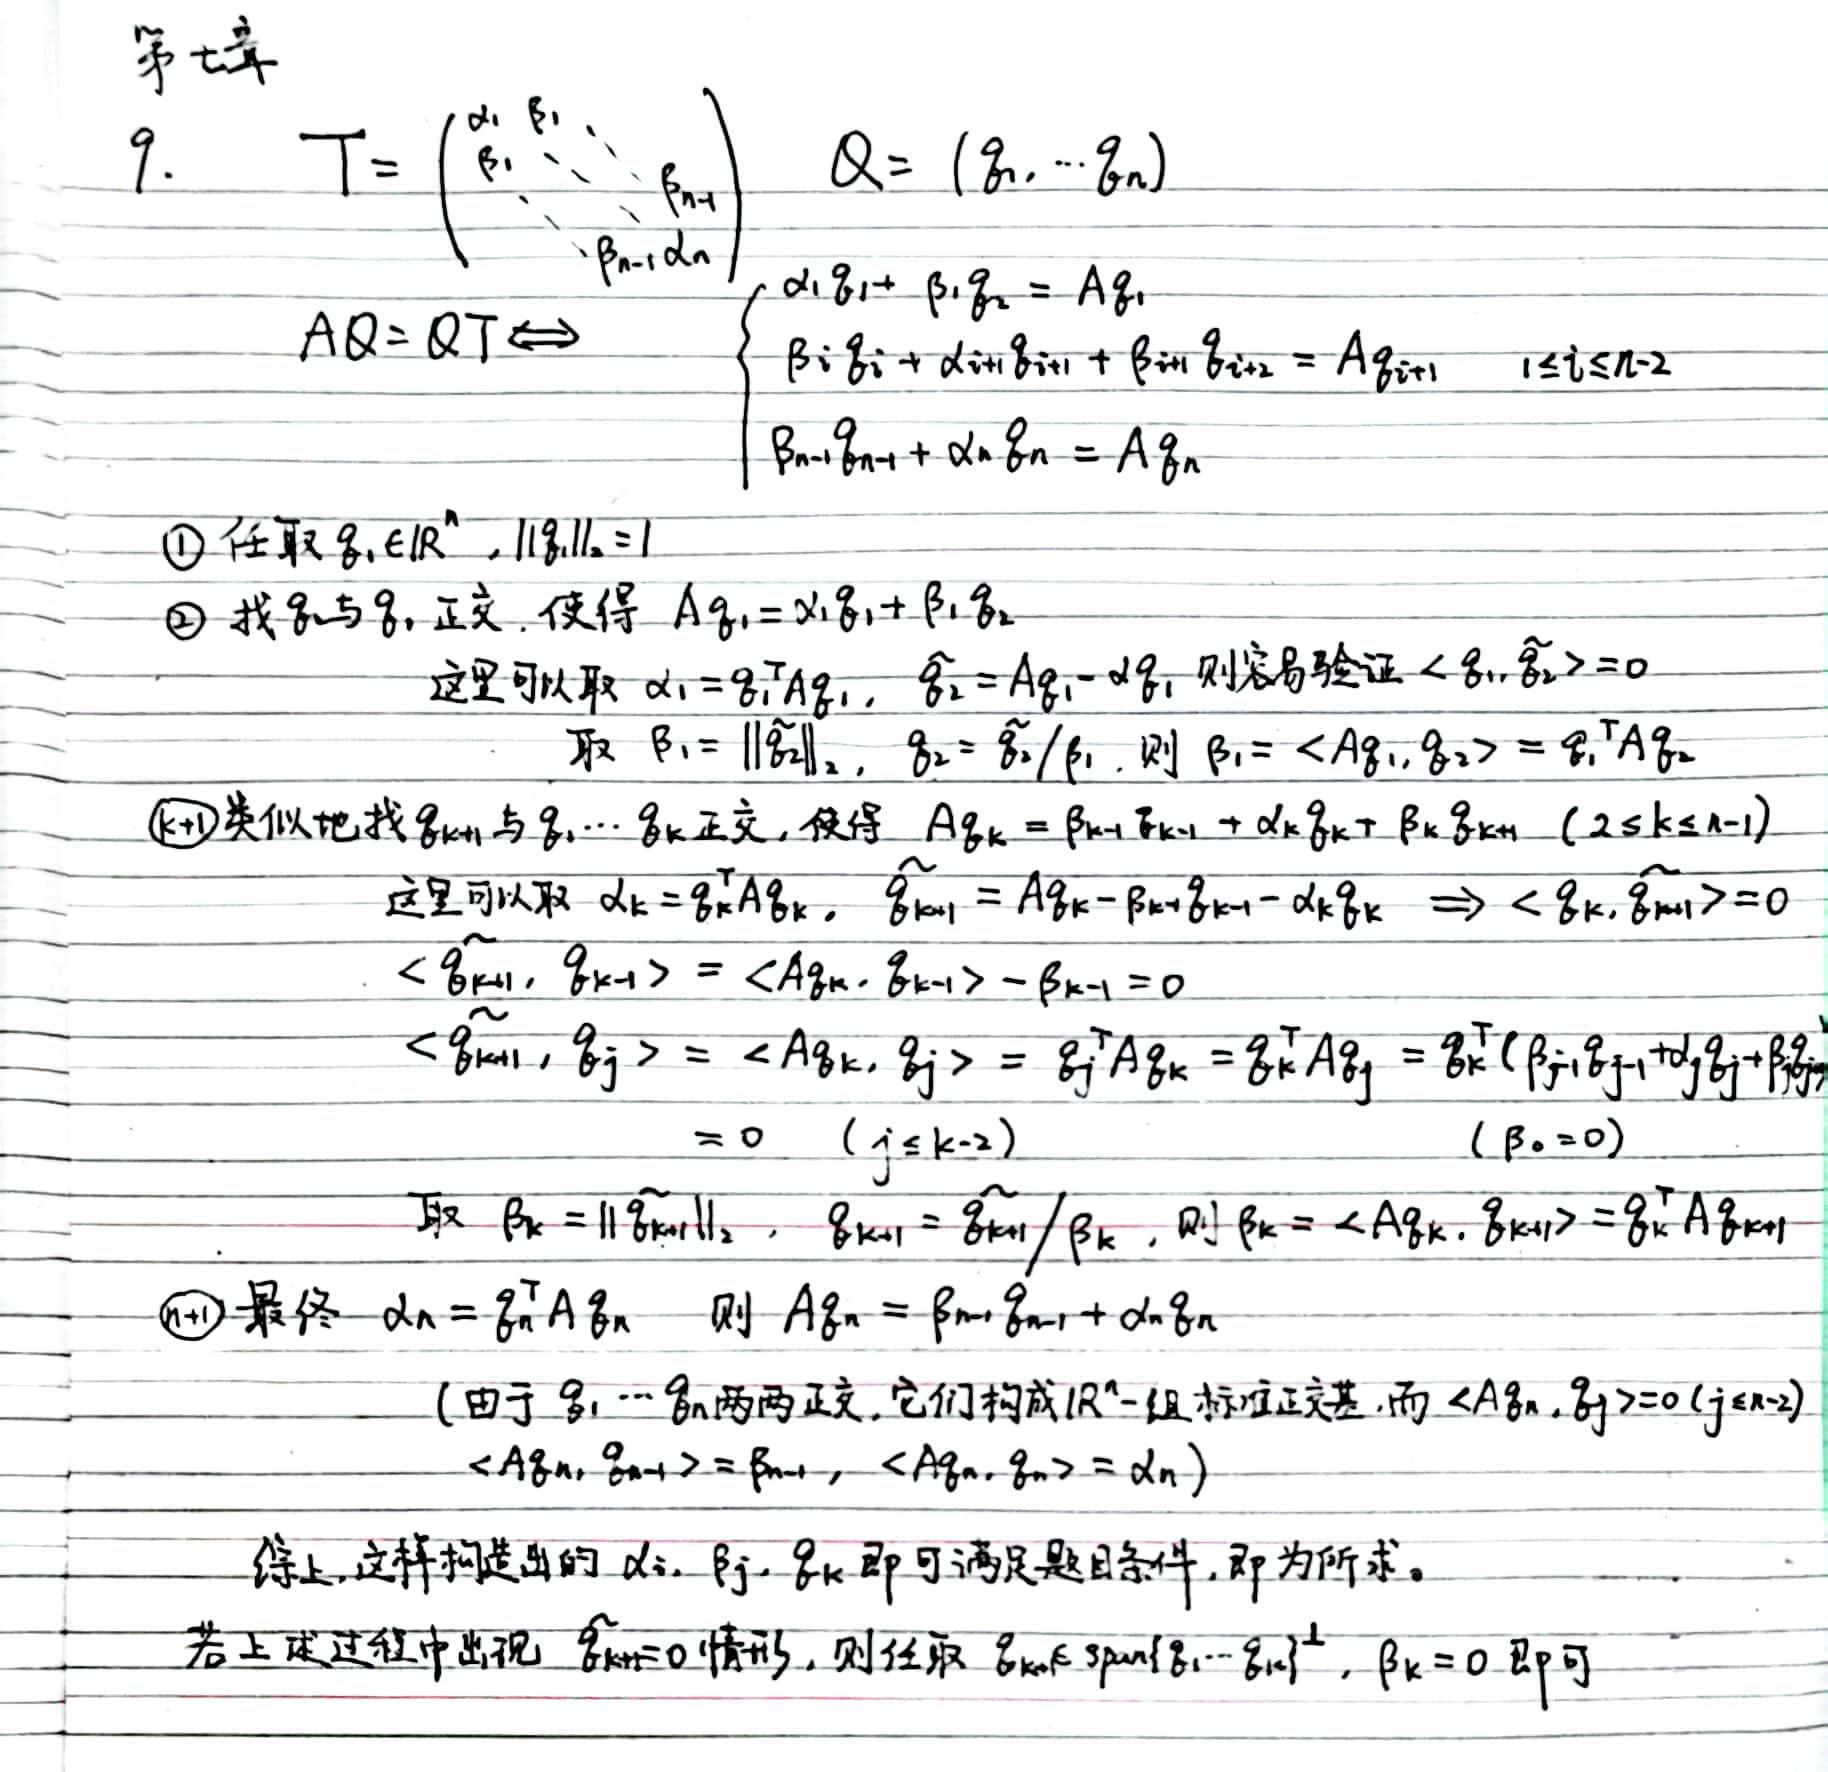 第七章
9. T = ( α₁ β₁ β₁ ⋱ ⋱ β_{n-1} β_{n-1} α_n ) Q = (q₁, ⋯ q_n)
α₁q₁ + β₁q₂ = Aq₁
AQ = QT ⟺ { β_i q_i + α_{i+1} q_{i+1} + β_{i+1} q_{i+2} = Aq_{i+1} 1≤i≤n-2
β_{n-1} q_{n-1} + α_n q_n = Aq_n
① 任取 q₁∈ℝⁿ, ||q₁||₂ = 1
② 找 q₂ 与 q₁ 正交, 使得 Aq₁ = α₁q₁ + β₁q₂
这里可以取 α₁ = q₁ᵀAq₁, q̃₂ = Aq₁ - αq₁ 则容易验证 <q₁, q̃₂> = 0
取 β₁ = ||q̃₂||₂, q₂ = q̃₂/β₁. 则 β₁ = <Aq₁, q₂> = q₁ᵀAq₂
(k+1) 类似地找 q_{k+1} 与 q₁⋯q_k 正交, 使得 Aq_k = β_{k-1} q_{k-1} + α_k q_k + β_k q_{k+1} (2≤k≤n-1)
这里可以取 α_k = q_kᵀAq_k, q̃_{k+1} = Aq_k - β_{k-1} q_{k-1} - α_k q_k ⟹ <q_k, q̃_{k+1}> = 0
<q̃_{k+1}, q_{k-1}> = <Aq_k, q_{k-1}> - β_{k-1} = 0
<q̃_{k+1}, q_j> = <Aq_k, q_j> = q_jᵀAq_k = q_kᵀAq_j = q_kᵀ(β_{j-1} q_{j-1} + α_j q_j + β_j q_{j+1})
= 0 (j≤k-2) (β₀ = 0)
取 β_k = ||q̃_{k+1}||₂, q_{k+1} = q̃_{k+1}/β_k, 则 β_k = <Aq_k, q_{k+1}> = q_kᵀAq_{k+1}
(n+1) 最终 α_n = q_nᵀAq_n 则 Aq_n = β_{n-1} q_{n-1} + α_n q_n
(由于 q₁⋯q_n 两两正交, 它们构成 ℝⁿ 一组标准正交基, 而 <Aq_n, q_j> = 0 (j≤n-2)
<Aq_n, q_{n-1}> = β_{n-1}, <Aq_n, q_n> = α_n)
综上, 这样构造出的 α_i, β_j, q_k 即可满足题目条件, 即为所求。
若上述过程中出现 q̃_{k+1} = 0 情形, 则任取 q_{k+1}∈span{q₁⋯q_k}^⊥, β_k = 0 即可